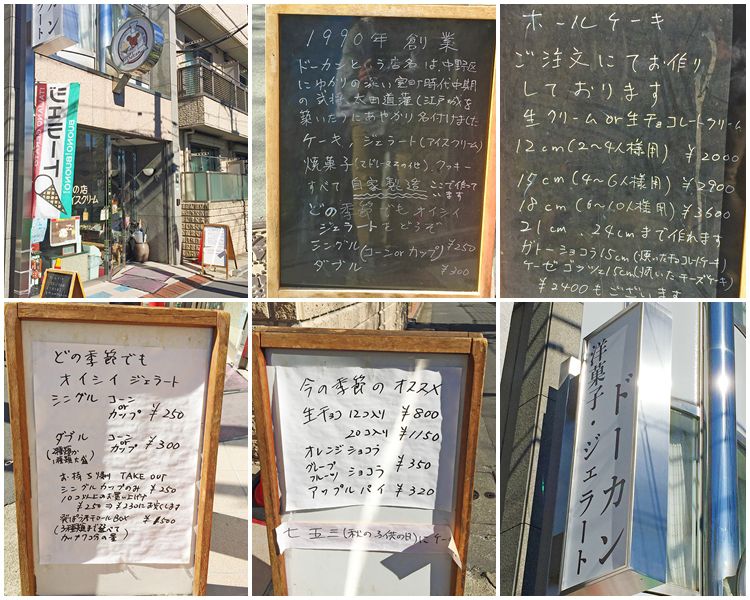 ジェラート
BUONO! BUONO!
の店
アイスクリーム
1990年 創業
ドーカンという店名は中野区
にゆかりの深い室町時代中期
の武将、太田道灌(江戸城を
築いた)にあやかり名付けました
ケーキ、ジェラート(アイスクリーム)
焼菓子(マドレーヌその他)、クッキー
すべて 自家製造 ここで作って
います
どの季節でもオイシイ
ジェラートをどうぞ
シングル (コーンorカップ) ¥250
ダブル ¥300
ホールケーキ
ご注文にてお作り
しております
生クリームor生チョコレートクリーム
12cm(2〜4人様用) ¥2000
15cm(4〜6人様用) ¥2900
18cm(6〜10人様用) ¥3600
21cm、24cmまで作れます
ガトーショコラ15cm(焼いたチョコレートケーキ)
ケーゼゴッツェ15cm(焼いたチーズケーキ)
¥2400もございます
どの季節でも
オイシイ ジェラート
シングル コーン
or
カップ ¥250
ダブル コーン
or
カップ ¥300
(2種類か
1種類大盛)
お持ち帰り TAKE OUT
シングルカップのみ ¥250
10コ以上のお買い上げで
¥250⇒¥230にお安くします
発ぽうスチロールBOX ¥1500
(3種類まで選べて
カップ7コ分の量)
今の季節のオススメ
生チョコ 12コ入り ¥800
20コ入り ¥1150
オレンジショコラ
グレープ
フルーツ ショコラ ¥350
アップルパイ ¥320
七五三(秋の子供の日)にケー
洋菓子・ジェラート
ドーカン